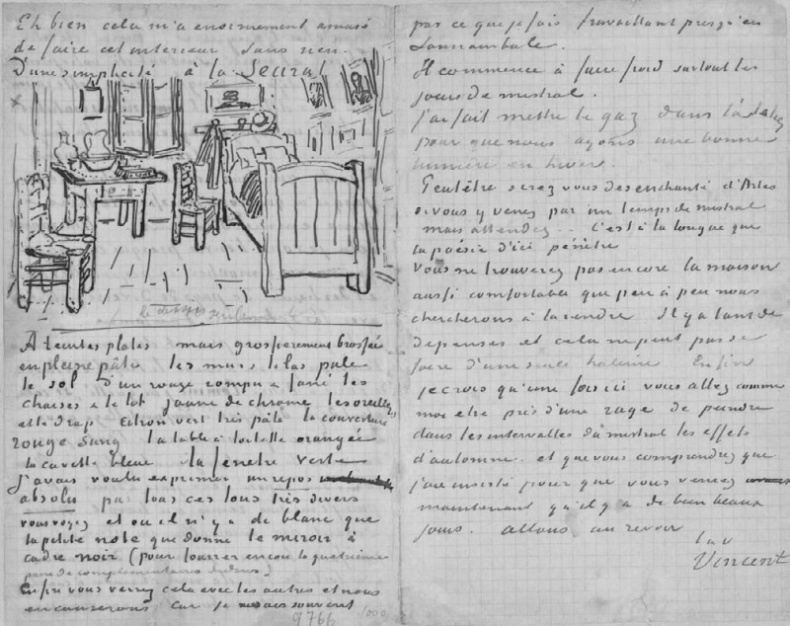 Eh bien cela m'a enormement amusé
de faire cet interieur sans rien.
D'une simplicité à la Seurat
A teintes plates mais grossierement brossée
en pleine pâte les murs lilas pale
le sol d'un rouge rompu & fané les
chaises & le lit jaune de chrome les oreillers
et le drap citron vert très pâle la couverture
rouge sang la table à toilette orangée
la cuvette bleue la fenetre verte
J'avais voulu exprimer un repos
absolu par tous ces tons très divers
vous voyez et où il n'y a de blanc que
la petite note que donne le miroir à
cadre noir (pour fourrer encore la quatrième
paire de complementaires dedans)
Enfin vous verrez cela avec les autres et nous
en causerons car je ne sais souvent
9766
pas ce que je fais travaillant presqu'en
somnambule.
Il commence à faire froid surtout les
jours de mistral.
J'ai fait mettre le gaz dans l'atelier
pour que nous ayons une bonne
lumière en hiver.
Peutêtre serez vous desenchanté d'Arles
si vous y venez par un temps de mistral
mais attendez.. C'est à la longue que
la poésie d'ici pénètre
Vous ne trouverez pas encore la maison
aussi comfortable que peu à peu nous
chercherons à la rendre Il y a tant de
depenses et cela ne peut pas se
faire d'une seule haleine Enfin
je crois qu'une fois ici vous allez comme
moi etre pris d'une rage de peindre
dans les intervalles du mistral les effets
d'automne. et que vous comprendrez que
j'aie insisté pour que vous venez
maintenant qu'il y a de bien beaux
jours. allons au revoir
t. à v.
Vincent